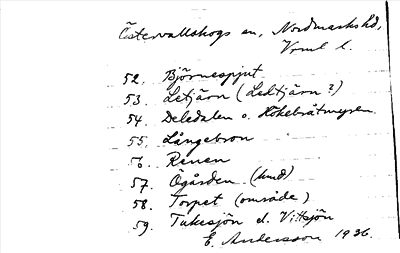 Östervallskogs sn, Nordmarks hd,
Vrml l.
52. Björnespjut
53. Letjärn (Lektjärn?)
54. Deledalen o. Hökebråtmyren
55. Långebron
56. Renen
57. Ögården (hmd)
58. Torpet (område)
59. Tukesjön el. Vittjön
E. Andersson 1926.